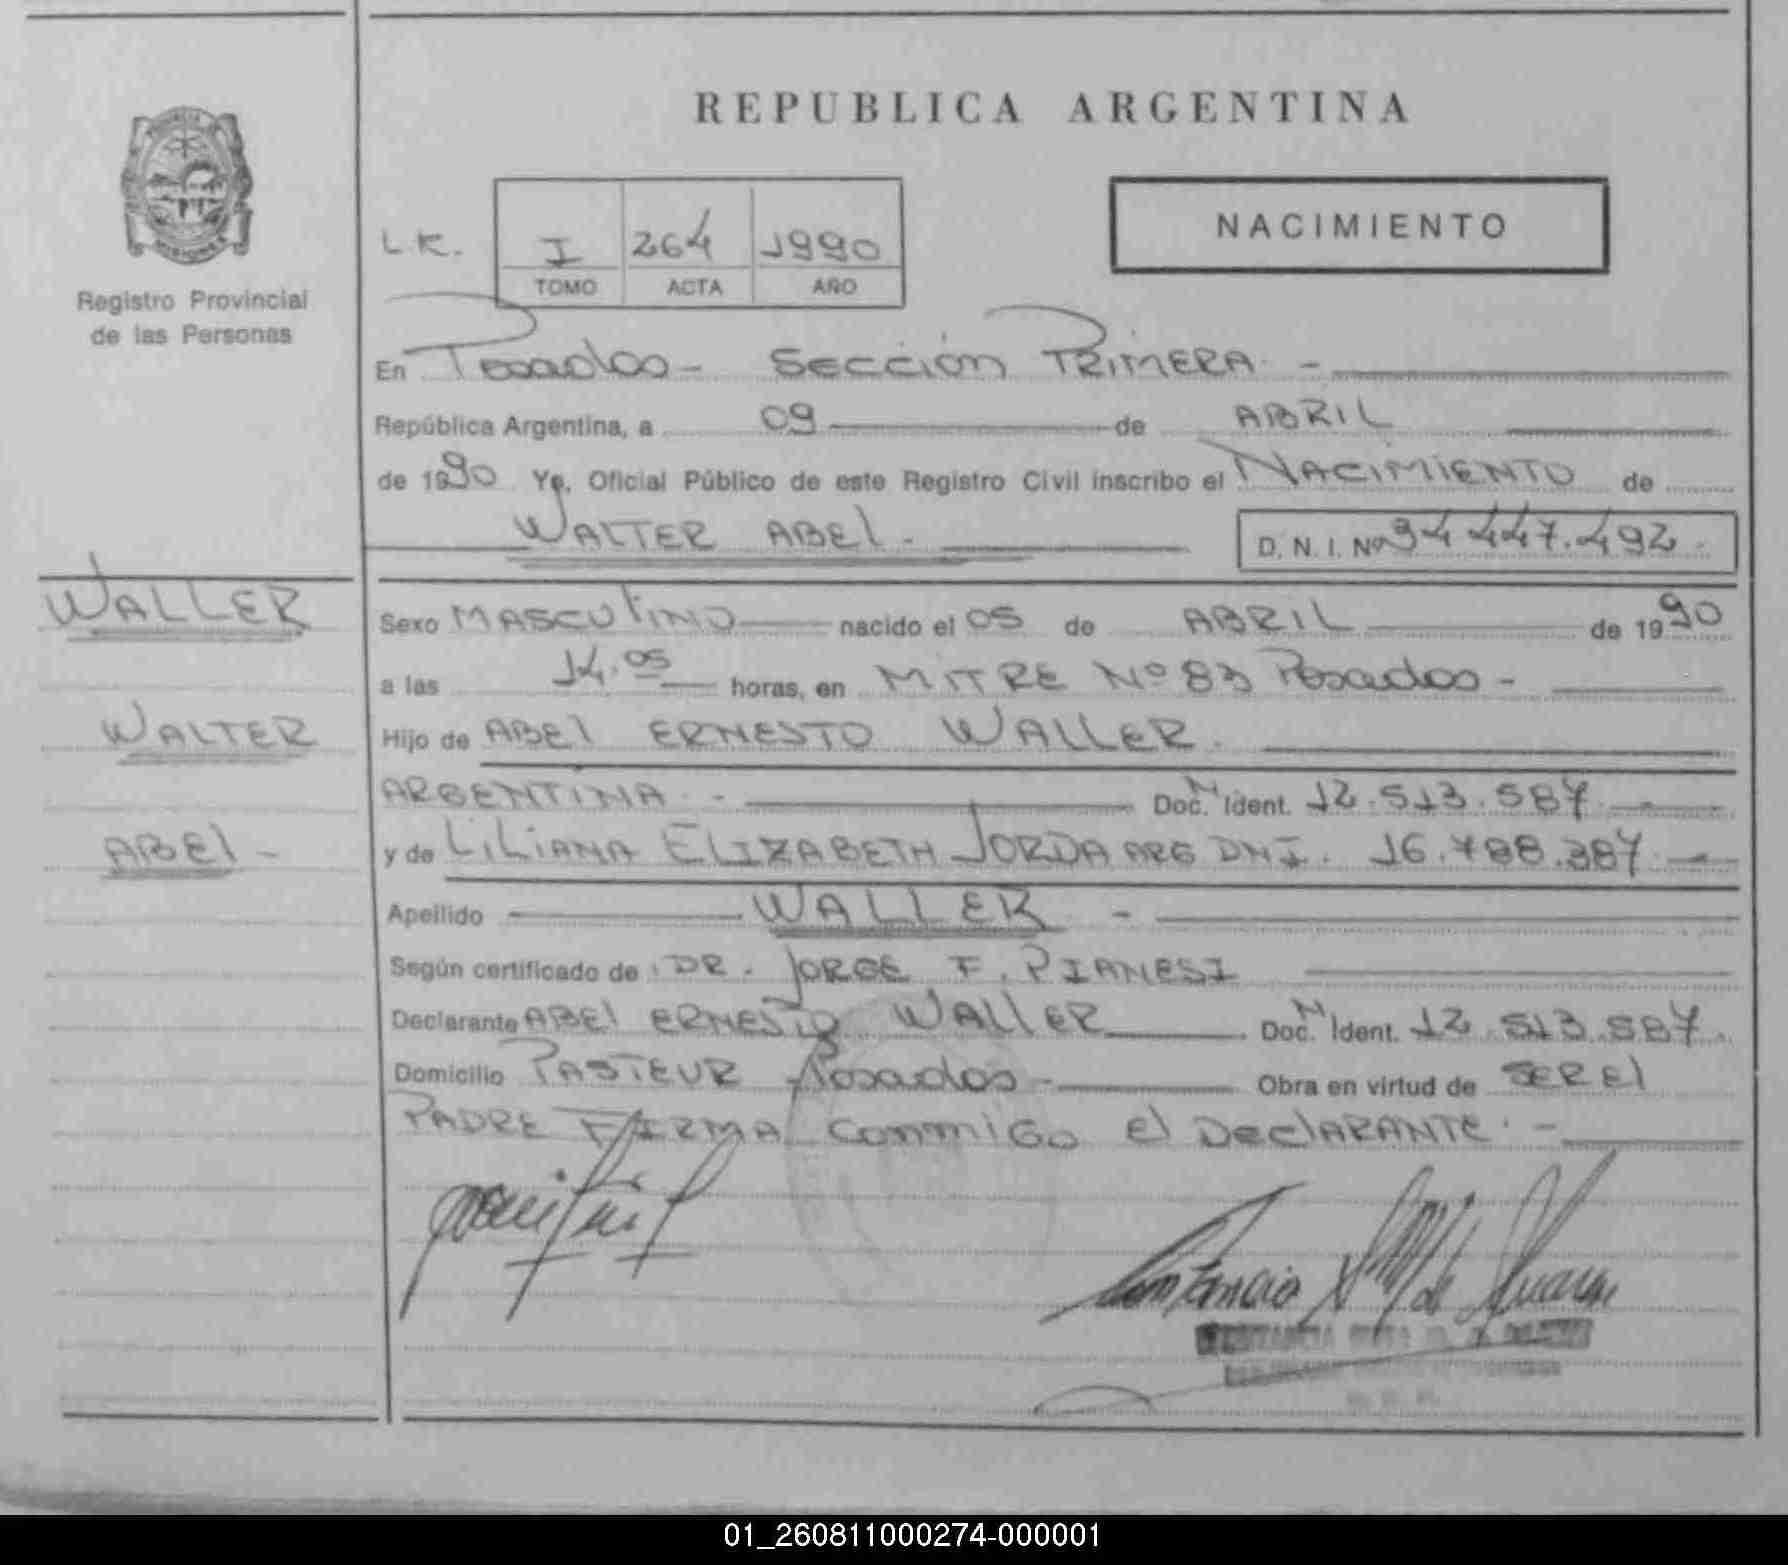 REPUBLICA ARGENTINA
Registro Provincial
de las Personas
L.K. I 264 1990
TOMO ACTA AÑO
NACIMIENTO
En Posadas - Sección PRIMERA. -
República Argentina, a 09 de ABRIL
de 1990 Yo, Oficial Público de este Registro Civil inscribo el NACIMIENTO de
WALTER ABEl.- D. N. I. Nº 34 447.492.
WALLER
WALTER
ABEl -
Sexo MASCUlINO nacido el 05 de ABRIL de 1990
a las 14.05 horas, en MITRE Nº 83 Posadas -
Hijo de ABEl ERNESTO WALLER.
ARGENTINA. - Doc. N Ident. 12.513.587. -
y de LiLiANA ELIZABETH JORDA ARG DNI. 16.788.387. -
Apellido WALLER -
Según certificado de DR. JORGE F. PIANESI
Declarante ABEl ERNESTO WAllER Doc. N Ident. 12.513.587.
Domicilio PASTEUR Posados - Obra en virtud de SER El
PADRE FIRMA CONMIGO El DEClARANTE. -
01_260811000274-000001